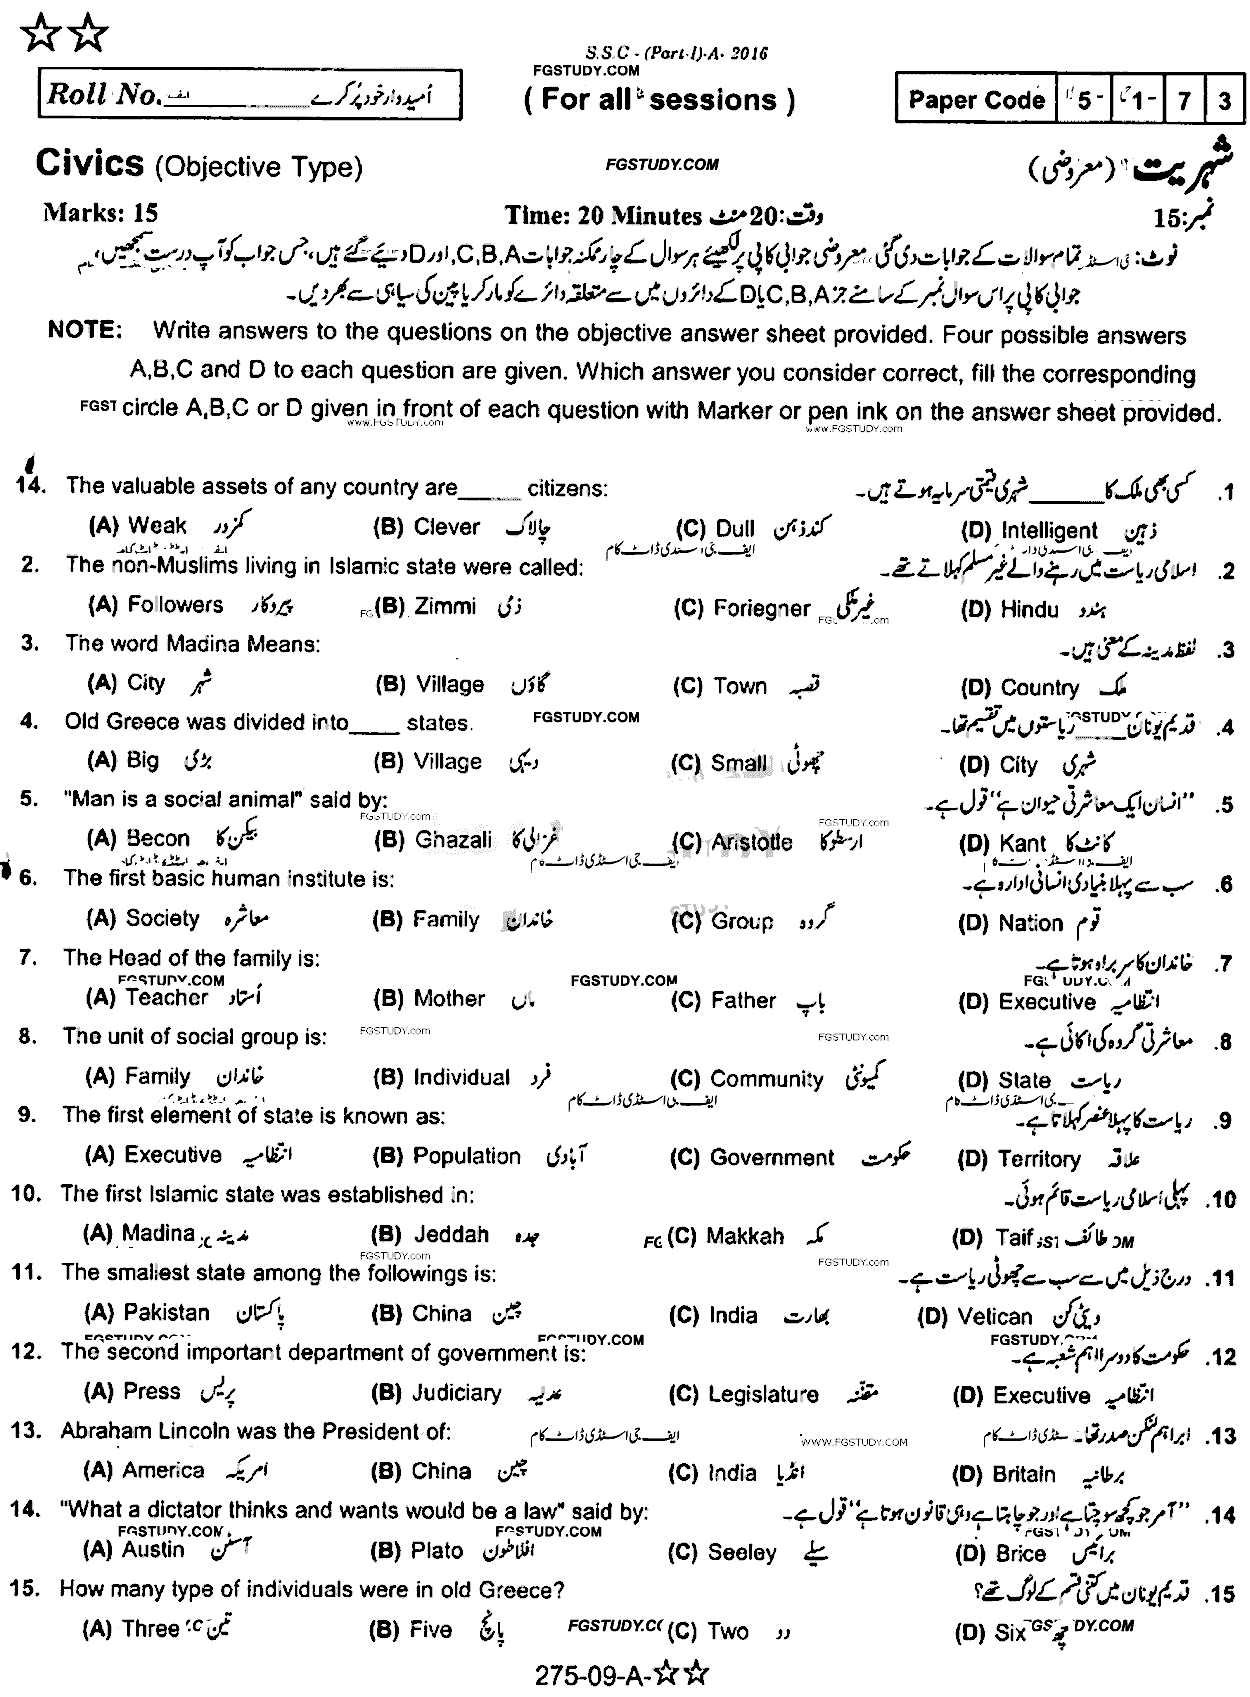 S.S.C - (Part-I)-A- 2016
FGSTUDY.COM
Roll No. امیدوار خود پُر کرے
( For all sessions )
Paper Code 5 - 1 - 7 3
Civics (Objective Type) FGSTUDY.COM شہریت (معروضی)
Marks: 15 Time: 20 Minutes وقت:20 منٹ نمبر:15
نوٹ: تمام سوالات کے جوابات دی گئی معروضی جوابی کاپی پر لکھیئے ہر سوال کے چار ممکنہ جوابات C,B,A, اور D دیئے گئے ہیں، جس جواب کو آپ درست سمجھیں،
جوابی کاپی پر اس سوال نمبر کے سامنے C,B,A یا D کے دائروں میں سے متعلقہ دائرے کو مارکر یا پین کی سیاہی سے بھر دیں۔
NOTE: Write answers to the questions on the objective answer sheet provided. Four possible answers
A,B,C and D to each question are given. Which answer you consider correct, fill the corresponding
FGST circle A,B,C or D given in front of each question with Marker or pen ink on the answer sheet provided.
www.FGSTUDY.com www.FGSTUDY.com
14. The valuable assets of any country are_____ citizens: 1. کسی بھی ملک کا ______ شہری قیمتی سرمایہ ہوتے ہیں۔
(A) Weak کمزور (B) Clever چالاک (C) Dull کند ذہن (D) Intelligent ذہین
ایف۔جی۔اسٹڈی ڈاٹ کام
2. The non-Muslims living in Islamic state were called: 2. اسلامی ریاست میں رہنے والے غیر مسلم کہلاتے تھے۔
(A) Followers پیروکار (B) Zimmi ذمی (C) Foriegner غیر ملکی (D) Hindu ہندو
3. The word Madina Means: 3. لفظ مدینہ کے معنی ہیں۔
(A) City شہر (B) Village گاؤں (C) Town قصبہ (D) Country ملک
4. Old Greece was divided into____ states. FGSTUDY.COM 4. قدیم یونان ____ ریاستوں میں تقسیم تھا۔
(A) Big بڑی (B) Village دیہی (C) Small چھوٹی (D) City شہری
5. "Man is a social animal" said by: 5. "انسان ایک معاشرتی حیوان ہے" قول ہے۔
FGSTUDY.com FGSTUDY.com
(A) Becon بیکن کا (B) Ghazali غزالی کا (C) Aristotle ارسطو کا (D) Kant کانٹ کا
ایف۔جی۔اسٹڈی ڈاٹ کام
6. The first basic human institute is: 6. سب سے پہلا بنیادی انسانی ادارہ ہے۔
(A) Society معاشرہ (B) Family خاندان (C) Group گروہ (D) Nation قوم
7. The Head of the family is: 7. خاندان کا سربراہ ہوتا ہے۔
FGSTUDY.COM FGSTUDY.COM
(A) Teacher استاد (B) Mother ماں (C) Father باپ (D) Executive انتظامیہ
8. The unit of social group is: FGSTUDY.com FGSTUDY.com 8. معاشرتی گروہ کی اکائی ہے۔
(A) Family خاندان (B) Individual فرد (C) Community کمیونٹی (D) State ریاست
ایف۔جی۔اسٹڈی ڈاٹ کام
9. The first element of state is known as: 9. ریاست کا پہلا عنصر کہلاتا ہے۔
(A) Executive انتظامیہ (B) Population آبادی (C) Government حکومت (D) Territory علاقہ
10. The first Islamic state was established in: 10. پہلی اسلامی ریاست قائم ہوئی۔
(A) Madina مدینہ (B) Jeddah جدہ (C) Makkah مکہ (D) Taif طائف
FGSTUDY.com FGSTUDY.com
11. The smallest state among the followings is: 11. درج ذیل میں سے سب سے چھوٹی ریاست ہے۔
(A) Pakistan پاکستان (B) China چین (C) India بھارت (D) Vetican ویٹی کن
12. The second important department of government is: 12. حکومت کا دوسرا اہم شعبہ ہے۔
(A) Press پریس (B) Judiciary عدلیہ (C) Legislature مقننہ (D) Executive انتظامیہ
13. Abraham Lincoln was the President of: ایف۔جی۔اسٹڈی ڈاٹ کام WWW.FGSTUDY.COM 13. ابراہم لنکن صدر تھا۔
(A) America امریکہ (B) China چین (C) India انڈیا (D) Britain برطانیہ
14. "What a dictator thinks and wants would be a law" said by: 14. "آمر جو کچھ سوچتا ہے اور جو چاہتا ہے وہی قانون ہوتا ہے" قول ہے۔
FGSTUDY.COM FGSTUDY.COM
(A) Austin آسٹن (B) Plato افلاطون (C) Seeley سیلے (D) Brice برائس
15. How many type of individuals were in old Greece? 15. قدیم یونان میں کتنی قسم کے لوگ تھے؟
(A) Three تین (B) Five پانچ (C) Two دو (D) Six چھ
275-09-A-☆☆